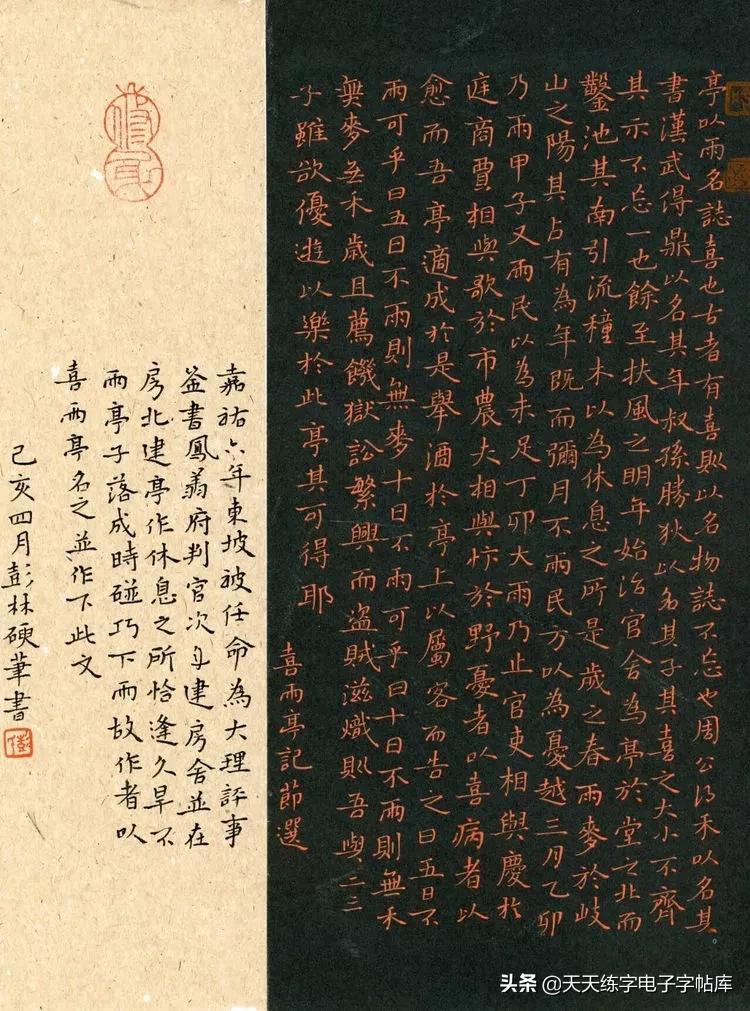 亭以雨名誌喜也古者有喜則以名物誌不忘也周公得禾以名其
書漢武得鼎以名其年叔孫勝狄以名其子其喜之大小不齊
其示不忘一也餘至扶風之明年始治官舍為亭於堂之北而
鑿池其南引流種木以為休息之所是歲之春雨麥於岐
山之陽其占有為年既而彌月不雨民方以為憂越三月乙卯
乃雨甲子又雨民以為未足丁卯大雨乃止官吏相與慶於
庭商賈相與歌於市農夫相與忭於野憂者以喜病者以
愈而吾亭適成於是舉酒於亭上以屬客而告之曰五日不
雨可乎曰五日不雨則無麥十日不雨可乎曰十日不雨則無禾
無麥無禾歲且薦饑獄訟繁興而盜賊滋熾則吾與二三
子雖欲優遊以樂於此亭其可得耶
喜雨亭記節選
嘉祐六年東坡被任命為大理評事
書鳳翔府判官次年建房舍並在
房北建亭作休息之所恰逢久旱不
雨亭子落成時碰巧下雨故作者以
喜雨亭名之並作下此文
己亥四月彭林硬筆書
头条 @天天练字电子字帖库